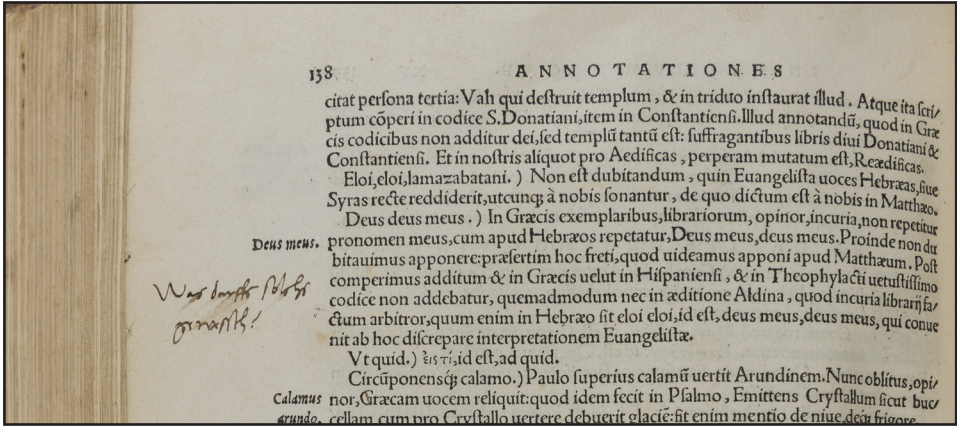 138 ANNOTATIONES
citat persona tertia: Vah qui destruit templum, & in triduo instaurat illud. Atque ita scri/
ptum cōperi in codice S.Donatiani, item in Constantiensi. Illud annotandū, quod in Græ
cis codicibus non additur dei, sed templū tantū est: suffragantibus libris diui Donatiani &
Constantiensi. Et in nostris aliquot pro Aedificas, perperam mutatum est, Reædificas.
Eloi, eloi, lamazabatani.) Non est dubitandum, quin Euangelista uoces Hebræas, siue
Syras recte reddiderit, utcunq; à nobis sonantur, de quo dictum est à nobis in Matthæo.
Deus deus meus.) In Græcis exemplaribus, librariorum, opinor, incuria, non repetitur
Deus meus. pronomen meus, cum apud Hebræos repetatur, Deus meus, deus meus. Proinde non du
bitauimus apponere: præsertim hoc freti, quod uideamus apponi apud Matthæum. Post
comperimus additum & in Græcis uelut in Hispaniensi, & in Theophylacti uetustissimo
codice non addebatur, quemadmodum nec in æditione Aldina, quod incuria librarij fa/
ctum arbitror, quum enim in Hebræo sit eloi eloi, id est, deus meus, deus meus, qui conue
nit ab hoc discrepare interpretationem Euangelistæ.
Was durffe solche
Vt quid.) εἰς τί, id est, ad quid.
Circūponensq; calamo.) Paulo superius calamū uertit Arundinem. Nunc oblitus, opi/
Calamus nor, Græcam uocem reliquit: quod idem fecit in Psalmo, Emittens Crystallum sicut buc/
arundo. cellam, cum pro Crystallo uertere debuerit glaciē: fit enim mentio de niue, deq; frigore.